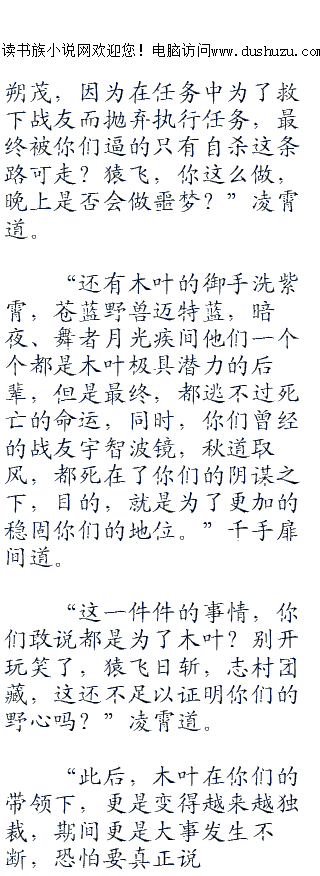 读书族小说网欢迎您！电脑访问www.dushuzu.com
朔茂，因为在任务中为了救
下战友而抛弃执行任务，最
终被你们逼的只有自杀这条
路可走？猿飞，你这么做，
晚上是否会做噩梦？”凌霄
道。
“还有木叶的御手洗紫
霄，苍蓝野兽迈特蓝，暗
夜、舞者月光疾间他们一个
个都是木叶极具潜力的后
辈，但是最终，都逃不过死
亡的命运，同时，你们曾经
的战友宇智波镜，秋道取
风，都死在了你们的阴谋之
下，目的，就是为了更加的
稳固你们的地位。”千手扉
间道。
“这一件件的事情，你
们敢说都是为了木叶？别开
玩笑了，猿飞日斩，志村团
藏，这还不足以证明你们的
野心吗？”凌霄道。
“此后，木叶在你们的
带领下，更是变得越来越独
裁，期间更是大事发生不
断，恐怕要真正说